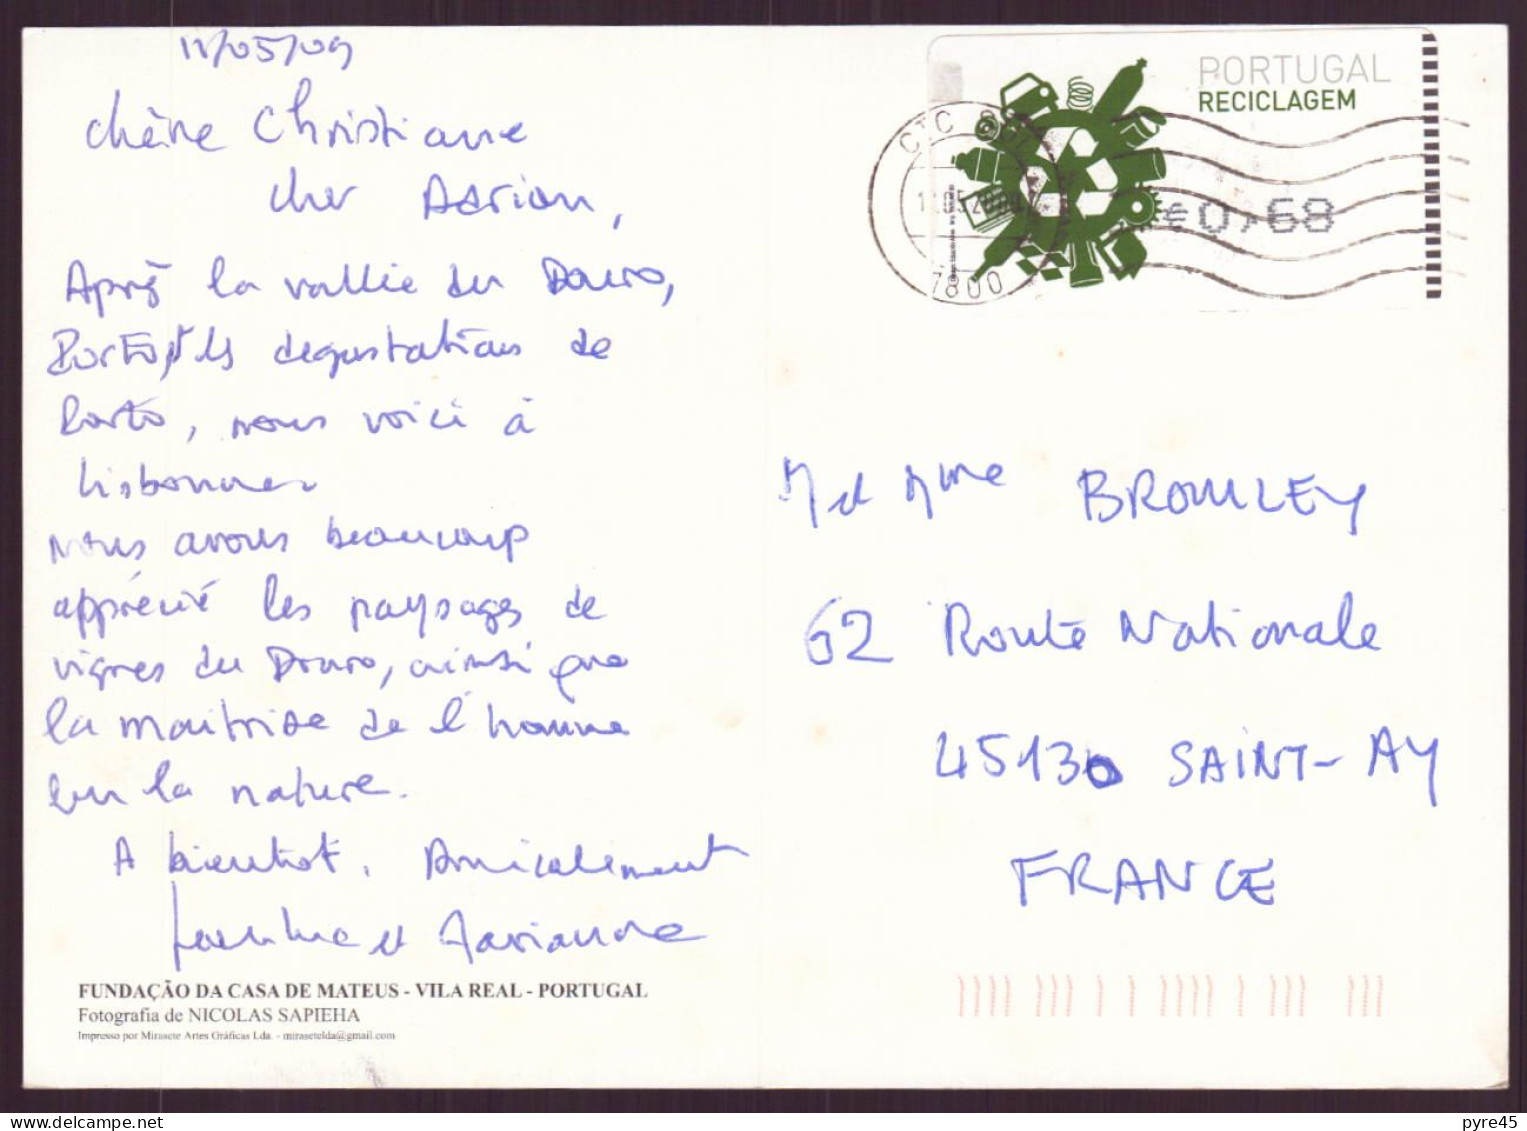 11/05/09
Chère Christiane
cher Adrian,
Après la vallée du Douro,
Porto, les dégustations de
Porto, nous voici à
Lisbonne
nous avons beaucoup
apprécié les paysages de
vignes du Douro, ainsi que
la maitrise de l'homme
sur la nature.
A bientôt. Amicalement
et Marianne
FUNDAÇÃO DA CASA DE MATEUS - VILA REAL - PORTUGAL
Fotografia de NICOLAS SAPIEHA
Impresso por Mirasete Artes Gráficas Lda. - mirasetelda@gmail.com
PORTUGAL
RECICLAGEM
€ 0,68
CTC
7800
M et Mme BROMLEY
62 Route Nationale
45130 SAINT-AY
FRANCE
delcampe.net
pyre45